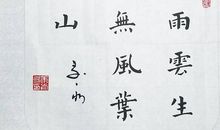 雨雲生
無風葉
山